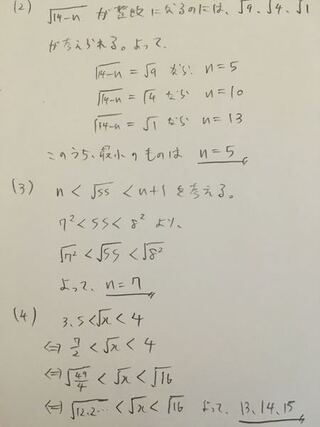 (2) √14-n が整数になるのには、√9、√4、√1
が考えられる。よって、
√14-n = √9 なら n=5
√14-n = √4 なら n=10
√14-n = √1 なら n=13
このうち、最小のものは n=5
(3) n < √55 < n+1 を考える。
7² < 55 < 8² より、
√7² < √55 < √8²
よって、n=7
(4) 3.5 < √x < 4
⇔ 7/2 < √x < 4
⇔ √49/4 < √x < √16
⇔ √12.2… < √x < √16 よって、13、14、15